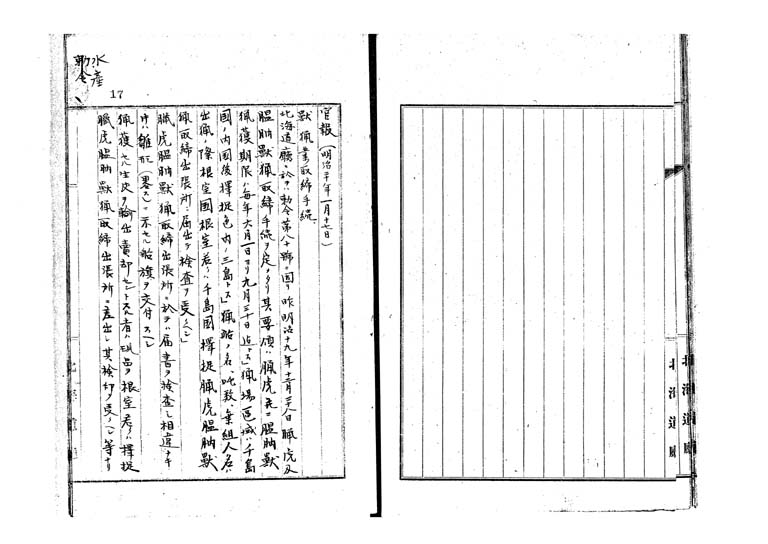 水産
勅令
17
官報(明治二十年一月十七日)
獣猟業取締手続
北海道廳ニ於テ勅令第八十號ニ因リ昨明治十九年十二月二十八日臘虎及
膃肭獣猟取締手続ヲ定メタリ其要領ハ臘虎並ニ膃肭獣
猟獲期限ハ毎年六月一日ヨリ九月三十日迄トス猟場区域ハ千島
國ノ内国後択捉色丹ノ三島トス猟船ノ名、吨数、乗組人名ハ
出猟ノ際根室國根室若クハ千島國択捉臘虎膃肭獣
猟取締出張所ニ届出テ検査ヲ受クヘシ
臘虎膃肭獣猟取締出張所ニ於テハ届書ヲ検査シ相違ナキ
中ハ雛形(畧之)ニ示セル船旗ヲ交付スヘシ
猟獲セル生皮ヲ輸出賣却セントスル者ハ現品ヲ根室若クハ択捉
臘虎膃肭獣猟取締出張所ニ差出シ其検印ヲ受クヘシ等ナリ
北海道廳
北海道廳